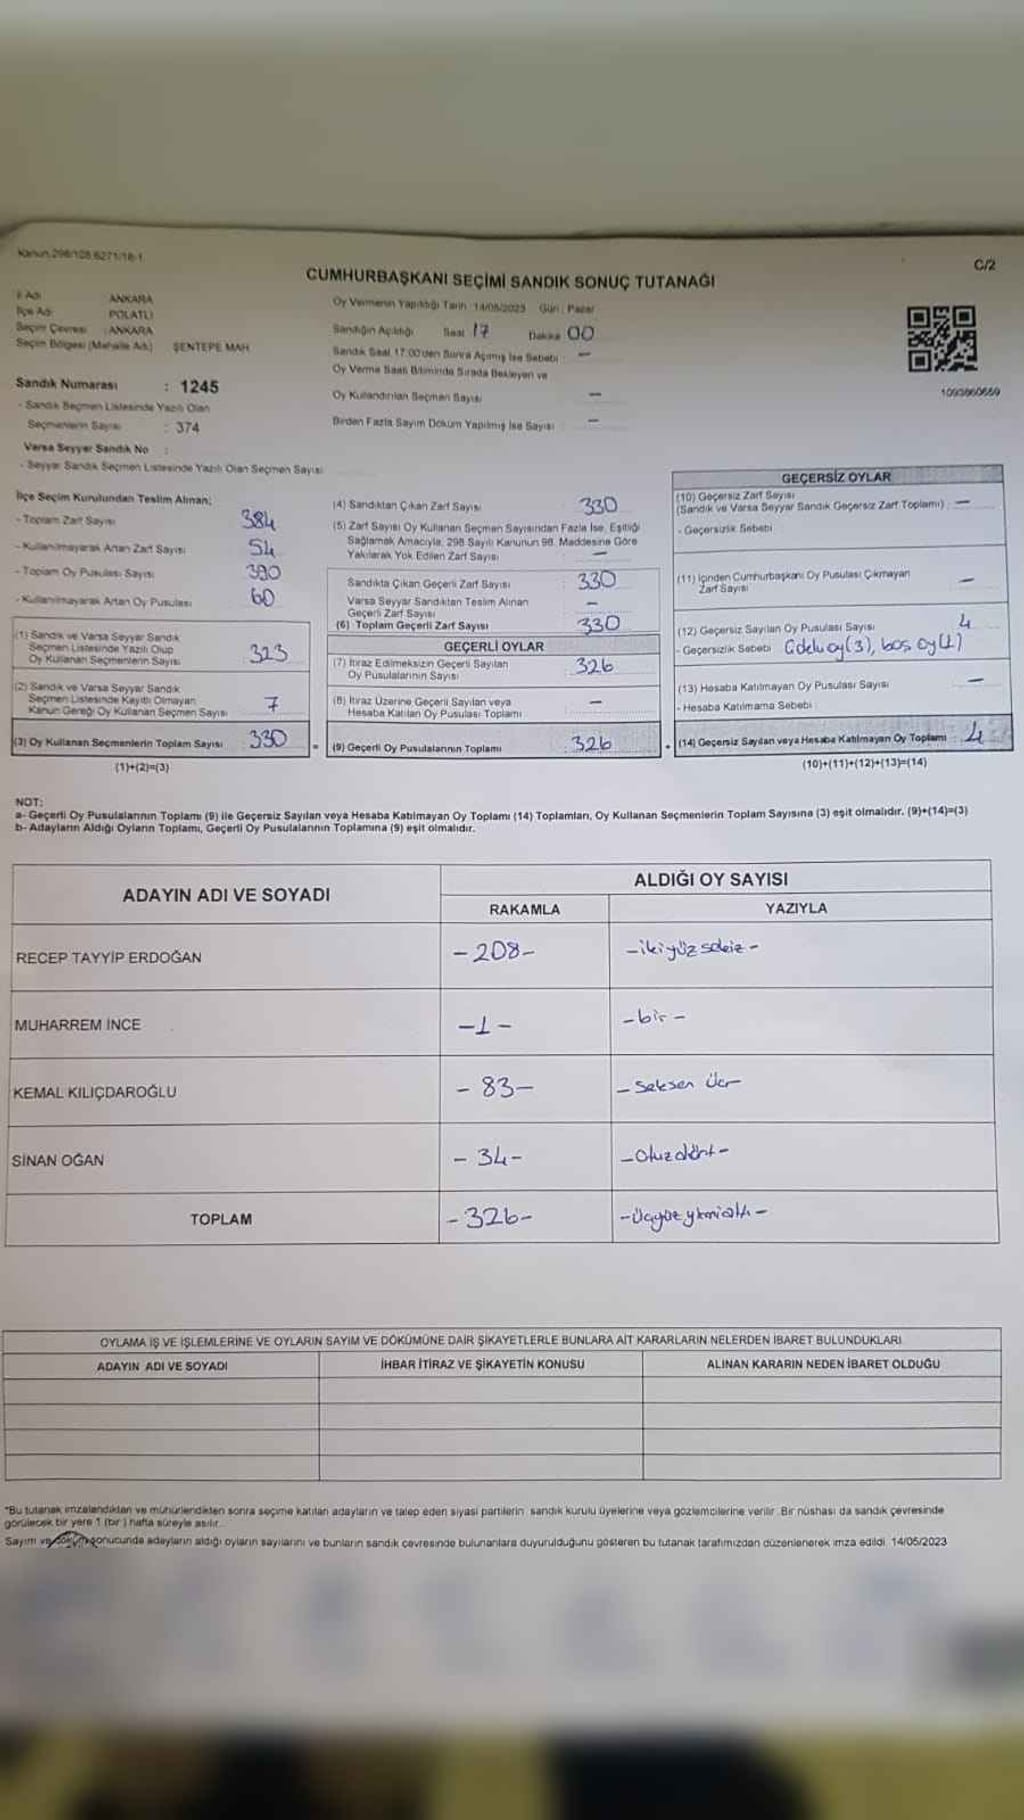 Kanun 298/105 6271/18-1
C/2
CUMHURBAŞKANI SEÇİMİ SANDIK SONUÇ TUTANAĞI
İl Adı : ANKARA
İlçe Adı : POLATLI
Seçim Çevresi : ANKARA
Seçim Bölgesi (Mahalle Adı) ŞENTEPE MAH.
Sandık Numarası : 1245
- Sandık Seçmen Listesinde Yazılı Olan
Seçmenlerin Sayısı : 374
Varsa Seyyar Sandık No :
- Seyyar Sandık Seçmen Listesinde Yazılı Olan Seçmen Sayısı
Oy Vermenin Yapıldığı Tarih :14/05/2023 Gün : Pazar
Sandığın Açıldığı Saat 17 Dakika 00
Sandık Saat 17:00'den Sonra Açılmış İse Sebebi : -
Oy Verme Saati Bitiminde Sırada Bekleyen ve
Oy Kullandırılan Seçmen Sayısı -
Birden Fazla Sayım Döküm Yapılmış İse Sayısı -
1093860659
İlçe Seçim Kurulundan Teslim Alınan;
- Toplam Zarf Sayısı 384
- Kullanılmayarak Artan Zarf Sayısı 54
- Toplam Oy Pusulası Sayısı 390
- Kullanılmayarak Artan Oy Pusulası 60
(1) Sandık ve Varsa Seyyar Sandık
Seçmen Listesinde Yazılı Olup
Oy Kullanan Seçmenlerin Sayısı 323
(2) Sandık ve Varsa Seyyar Sandık
Seçmen Listesinde Kayıtlı Olmayan
Kanun Gereği Oy Kullanan Seçmen Sayısı 7
(3) Oy Kullanan Seçmenlerin Toplam Sayısı 330
(1)+(2)=(3)
(4) Sandıktan Çıkan Zarf Sayısı 330
(5) Zarf Sayısı Oy Kullanan Seçmen Sayısından Fazla İse, Eşitliği
Sağlamak Amacıyla, 298 Sayılı Kanunun 98. Maddesine Göre
Yakılarak Yok Edilen Zarf Sayısı -
Sandıkta Çıkan Geçerli Zarf Sayısı : 330
Varsa Seyyar Sandıktan Teslim Alınan
Geçerli Zarf Sayısı -
(6) Toplam Geçerli Zarf Sayısı : 330
GEÇERLİ OYLAR
(7) İtiraz Edilmeksizin Geçerli Sayılan
Oy Pusulalarının Sayısı : 326
(8) İtiraz Üzerine Geçerli Sayılan veya
Hesaba Katılan Oy Pusulası Toplamı : -
= (9) Geçerli Oy Pusulalarının Toplamı : 326
GEÇERSİZ OYLAR
(10) Geçersiz Zarf Sayısı
(Sandık ve Varsa Seyyar Sandık Geçersiz Zarf Toplamı) : -
- Geçersizlik Sebebi
(11) İçinden Cumhurbaşkanı Oy Pusulası Çıkmayan
Zarf Sayısı -
(12) Geçersiz Sayılan Oy Pusulası Sayısı 4
- Geçersizlik Sebebi oy(3), boş oy(1)
(13) Hesaba Katılmayan Oy Pusulası Sayısı -
- Hesaba Katılmama Sebebi
(14) Geçersiz Sayılan veya Hesaba Katılmayan Oy Toplamı : 4
(10)+(11)+(12)+(13)=(14)
NOT:
a- Geçerli Oy Pusulalarının Toplamı (9) ile Geçersiz Sayılan veya Hesaba Katılmayan Oy Toplamı (14) Toplamları, Oy Kullanan Seçmenlerin Toplam Sayısına (3) eşit olmalıdır. (9)+(14)=(3)
b- Adayların Aldığı Oyların Toplamı, Geçerli Oy Pusulalarının Toplamına (9) eşit olmalıdır.
ADAYIN ADI VE SOYADI
ALDIĞI OY SAYISI
RAKAMLA YAZIYLA
RECEP TAYYİP ERDOĞAN -208- -ikiyüz sekiz-
MUHARREM İNCE -1- -bir-
KEMAL KILIÇDAROĞLU -83- -Seksen Üç-
SİNAN OĞAN -34- -Otuzdört-
TOPLAM -326- -Üçyüz yirmialtı-
OYLAMA İŞ VE İŞLEMLERİNE VE OYLARIN SAYIM VE DÖKÜMÜNE DAİR ŞİKAYETLERLE BUNLARA AİT KARARLARIN NELERDEN İBARET BULUNDUKLARI
ADAYIN ADI VE SOYADI İHBAR İTİRAZ VE ŞİKAYETİN KONUSU ALINAN KARARIN NEDEN İBARET OLDUĞU
*Bu tutanak imzalandıktan ve mühürlendikten sonra seçime katılan adayların ve talep eden siyasi partilerin sandık kurulu üyelerine veya gözlemcilerine verilir. Bir nüshası da sandık çevresinde
görülecek bir yere 1 (bir) hafta süreyle asılır.
Sayım ve döküm sonucunda adayların aldığı oyların sayılarını ve bunların sandık çevresinde bulunanlara duyurulduğunu gösteren bu tutanak tarafımızdan düzenlenerek imza edildi. 14/05/2023